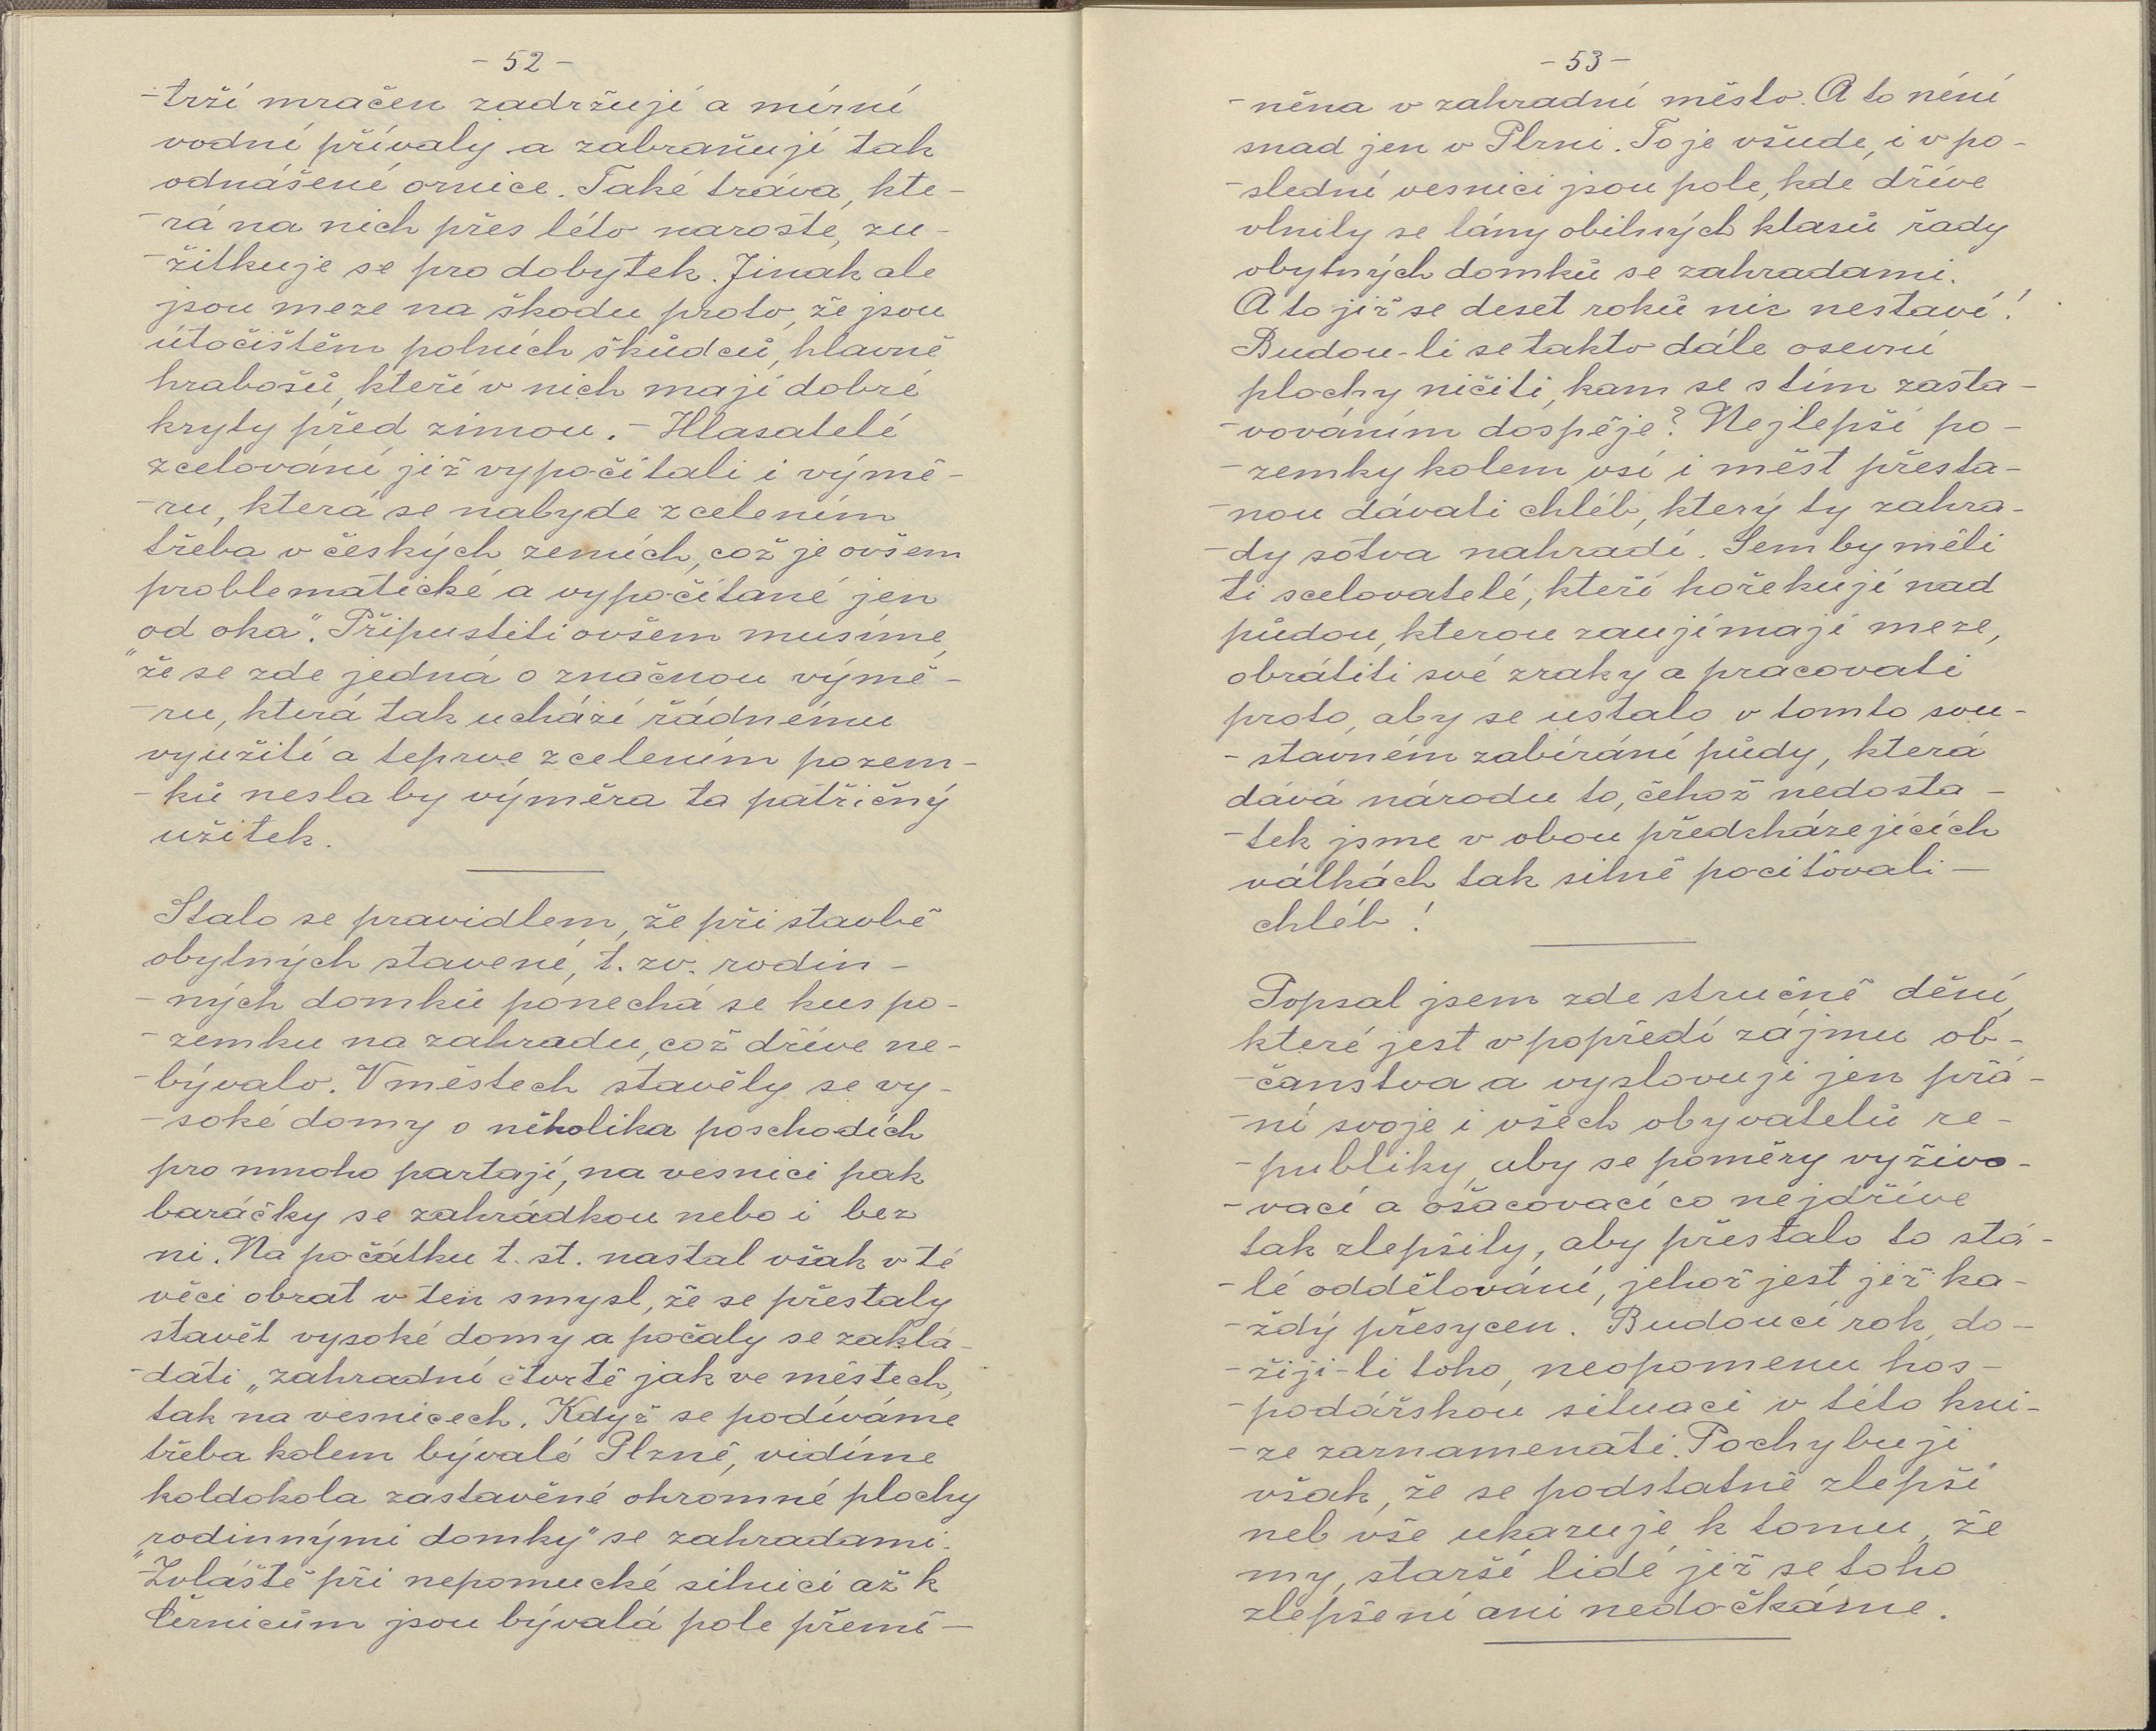 - 52 -
-trží mračen zadržují a mírní
vodní přívaly a zabraňují tak
odnášení ornice. Také tráva, kte-
-rá na nich přes léto naroste, zu-
-žitkuje se pro dobytek. Jinak ale
jsou meze na škodu proto, že jsou
útočištěm polních škůdců, hlavně
hrabošů, kteří v nich mají dobré
kryty před zimou. - Hlasatelé
zcelování již vypočítali i výmě-
-ru, která se nabyde zcelením
třeba v českých zemích, což je ovšem
problematické a vypočítané jen
„od oka“. Připustiti ovšem musíme,
že se zde jedná o značnou výmě-
-ru, která tak uchází řádnému
využití a teprve zcelením pozem-
-ků nesla by výměra ta patřičný
užitek.
Stalo se pravidlem, že při stavbě
obytných stavení, t. zv. rodin-
-ných domků ponechá se kus po-
-zemku na zahradu, což dříve ne-
-bývalo. V městech stavěly se vy-
-soké domy o několika poschodích
pro mnoho partají, na vesnici pak
baráčky se zahrádkou nebo i bez
ní. Na počátku t. st. nastal však v té
věci obrat v ten smysl, že se přestaly
stavět vysoké domy a počaly se zaklá-
-dati „zahradní čtvrtě“ jak ve městech,
tak na vesnicech. Když se podíváme
třeba kolem bývalé Plzně, vidíme
koldokola zastavěné ohromné plochy
„rodinnými domky“ se zahradami.
Zvláště při nepomucké silnici až k
Černicům jsou bývalá pole přemě-
- 53 -
-něna v zahradní město. A to není
snad jen v Plzni. To je všude, i v po-
-slední vesnici jsou pole, kde dříve
vlnily se lány obilných klasů řady
obytných domků se zahradami.
A to již se deset roků nic nestaví!
Budou-li se takto dále osevní
plochy ničiti, kam se s tím zasta-
-vováním dospěje? Nejlepší po-
-zemky kolem vsí i měst přesta-
-nou dávati chléb, který ty zahra-
-dy sotva nahradí. Sem by měli
ti scelovatelé, kteří hořekují nad
půdou, kterou zaujímají meze,
obrátiti své zraky a pracovati
proto, aby se ustalo v tomto sou-
-stavném zabírání půdy, která
dává národu to, čehož nedosta-
-tek jsme v obou předcházejících
válkách tak silně pociťovali -
chléb!
Popsal jsem zde stručně dění,
které jest v popředí zájmu ob-
-čanstva a vyslovuji jen přá-
-ní svoje i všech obyvatelů re-
-publiky, aby se poměry vyživo-
-vací a ošacovací co nejdříve
tak zlepšily, aby přestalo to stá-
-lé oddělování, jehož jest již ka-
-ždý přesycen. Budoucí rok, do-
-žiji-li toho, neopomenu hos-
-podářskou situaci v této kni-
-ze zaznamenati. Pochybuji
však, že se podstatně zlepší
neb vše ukazuje k tomu, že
my, starší lidé již se toho
zlepšení ani nedočkáme.